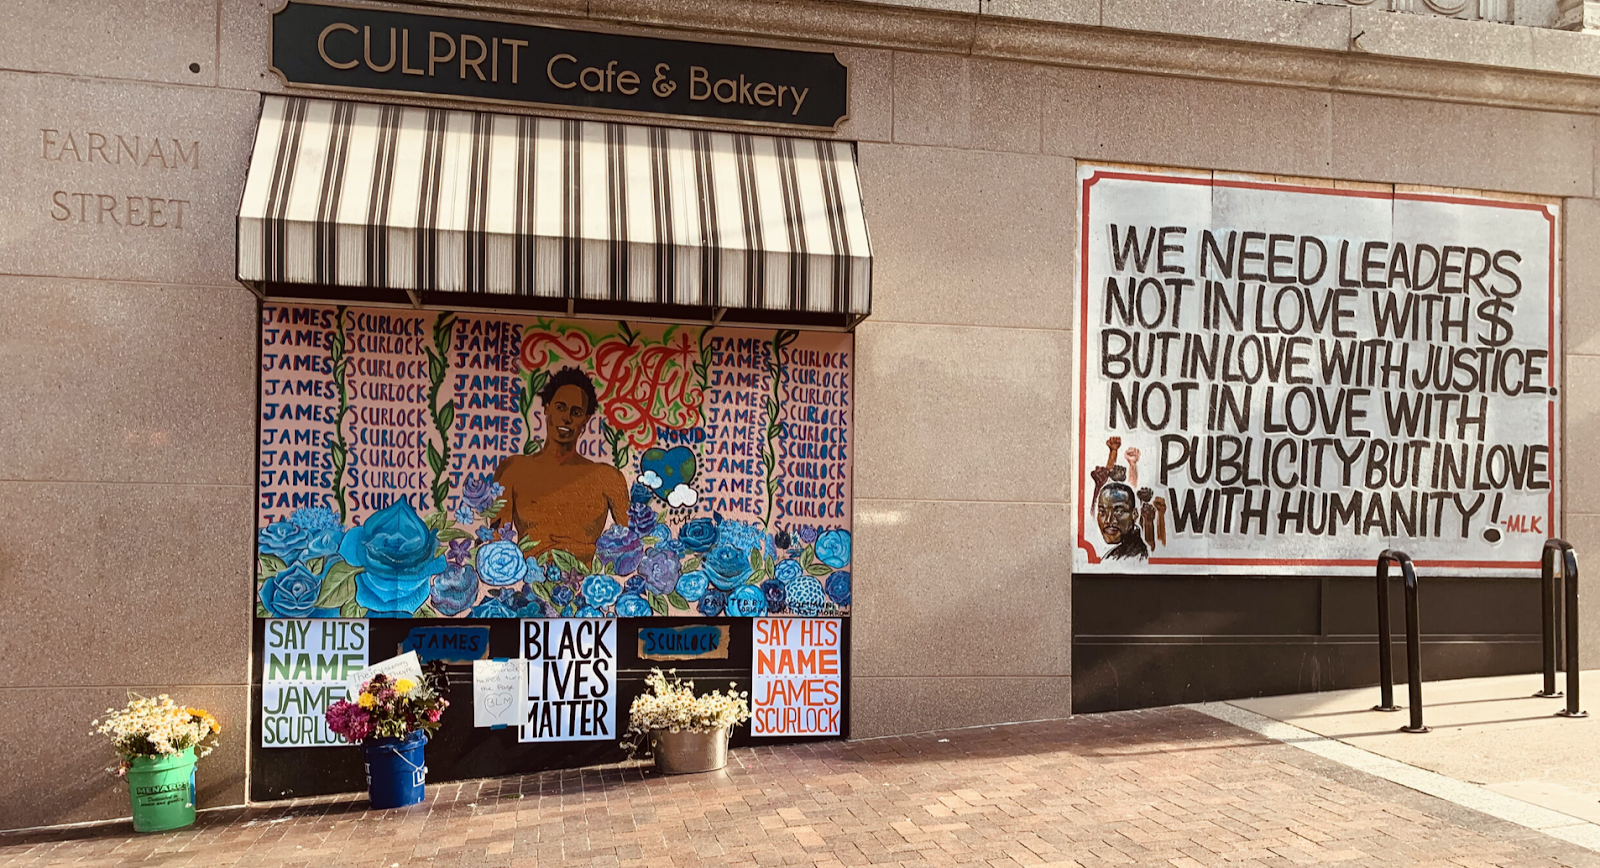 CULPRIT Cafe & Bakery
FARNAM
STREET
JAMES SCURLOCK JAMES JAMES SCURLOCK
JAMES SCURLOCK JAMES JAMES SCURLOCK
JAMES SCURLOCK JAMES JAMES SCURLOCK
JAMES SCURLOCK JAMES JAMES SCURLOCK
JAMES SCURLOCK JAMES JAMES SCURLOCK
JAMES SCURLOCK JAMES JAMES SCURLOCK
JAMES SCURLOCK JAMES JAMES SCURLOCK
JAMES SCURLOCK JAMES JAMES SCURLOCK
JAMES SCURLOCK JAMES JAMES SCURLOCK
JuJu
WORLD
PAINTED BY THE COMMUNITY
SAY HIS
NAME
JAMES
SCURLOCK
JAMES
BLM
BLACK
LIVES
MATTER
SCURLOCK
SAY HIS
NAME
JAMES
SCURLOCK
MENARDS
WE NEED LEADERS
NOT IN LOVE WITH $
BUT IN LOVE WITH JUSTICE.
NOT IN LOVE WITH
PUBLICITY BUT IN LOVE
WITH HUMANITY!
-MLK